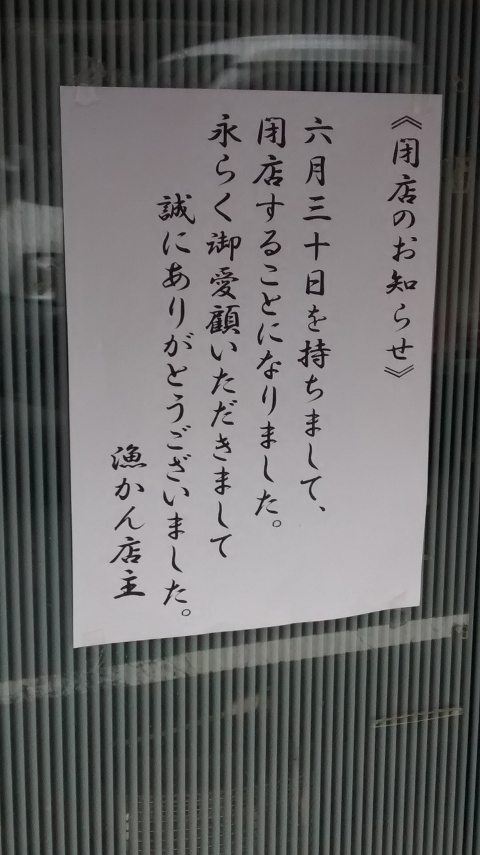 《閉店のお知らせ》
六月三十日を持ちまして、
閉店することになりました。
永らく御愛顧いただきまして
誠にありがとうございました。
漁かん店主